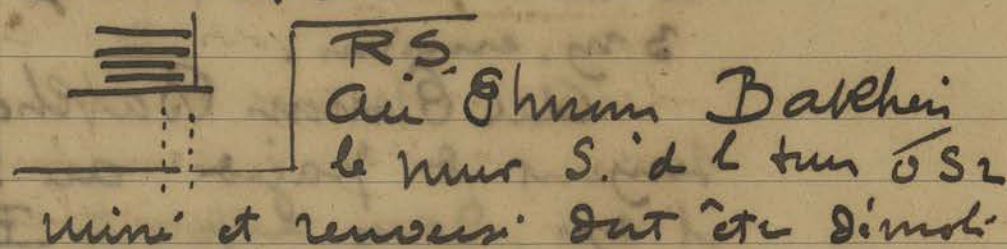 R.S.
au Shunn Bakhein
le mur S. d l tun OS2
miné et renversé dut être démoli